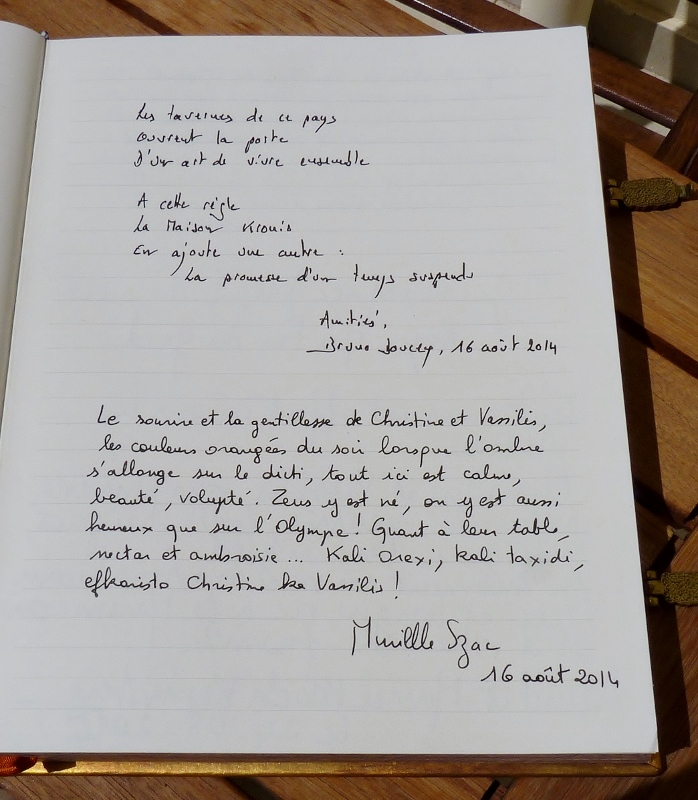 Les tavernes de ce pays
Ouvrent la porte
D'un art de vivre ensemble
A cette règle
La Maison Kronis
En ajoute une autre :
La promesse d'un temps suspendu
Amitiés,
Bruno Doucey, 16 août 2014
Le sourire et la gentillesse de Christine et Vassilis,
les couleurs orangées du soir lorsque l'ombre
s'allonge sur le dicti, tout ici est calme,
beauté, volupté. Zeus y est né, on y est aussi
heureux que sur l'Olympe ! Quant à leur table,
nectar et ambroisie... Kali Orexi, kali taxidi,
efkaristo Christine ke Vassilis !
Murielle Szac
16 août 2014